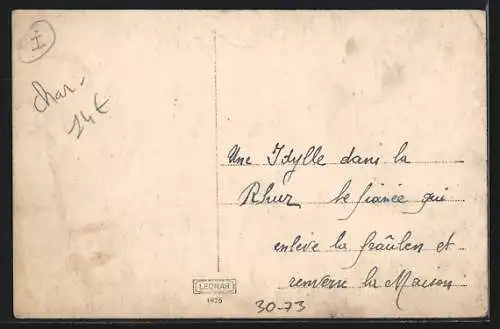 I
char-
14€
Une Idylle dans la
Rhur le fiancée qui
enlève la fraülen et
renverse la Maison
LEONAR
1925
30-73